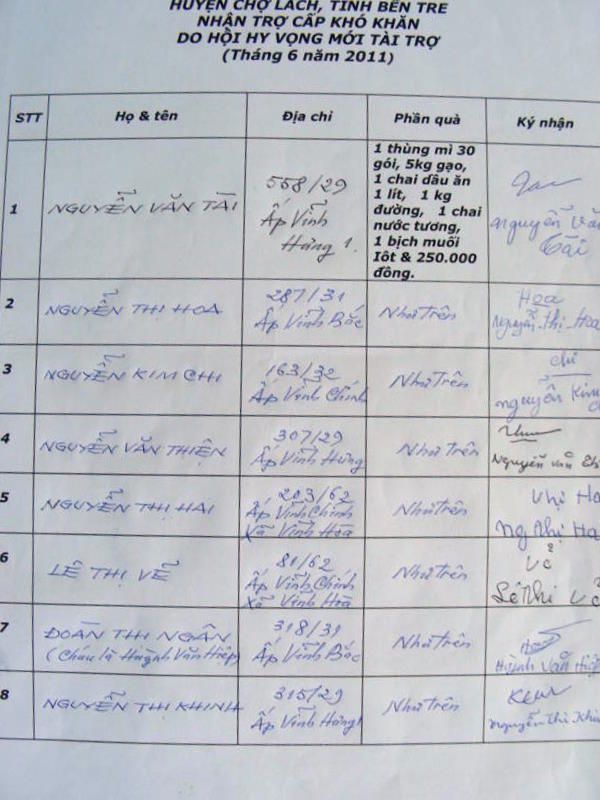 HUYỆN CHỢ LÁCH, TỈNH BẾN TRE
NHẬN TRỢ CẤP KHÓ KHĂN
DO HỘI HY VỌNG MỚI TÀI TRỢ
(Tháng 6 năm 2011)
STT Họ & tên Địa chỉ Phần quà Ký nhận
1 NGUYỄN VĂN TÀI
558/29
Ấp Vĩnh
Hưng 1.
1 thùng mì 30
gói, 5kg gạo,
1 chai dầu ăn
1 lít, 1 kg
đường, 1 chai
nước tương,
1 bịch muối
Iôt & 250.000
đồng.
Nguyễn Văn
Tài
2 NGUYỄN THỊ HOA
287/31
Ấp Vĩnh Bắc
Như Trên
Hoa
Nguyễn-thị-Hoa
3 NGUYỄN KIM CHI
163/32
Ấp Vĩnh Chính
Như Trên
Chi
nguyễn Kim
4 NGUYỄN VĂN THIỆN
307/29
Ấp Vĩnh Hưng
Như Trên
Nguyễn văn
5 NGUYỄN THỊ HAI
203/62
Ấp Vĩnh Chính
Xã Vĩnh Hòa
Như Trên
thị Ha
ng thị Ha
6 LÊ THỊ VẼ
81/62
Ấp Vĩnh Chính
Xã Vĩnh Hòa
Như Trên
Vẻ
Lê thị Vẻ
7 ĐOÀN THỊ NGÂN
(Cháu là Huỳnh Văn Hiệp)
318/31
Ấp Vĩnh Bắc
Như Trên
Huỳnh Văn Hiệp
8 NGUYỄN THỊ KHINH
315/29
Ấp Vĩnh Hưng 1
Như Trên
nguyễn Thị Khin